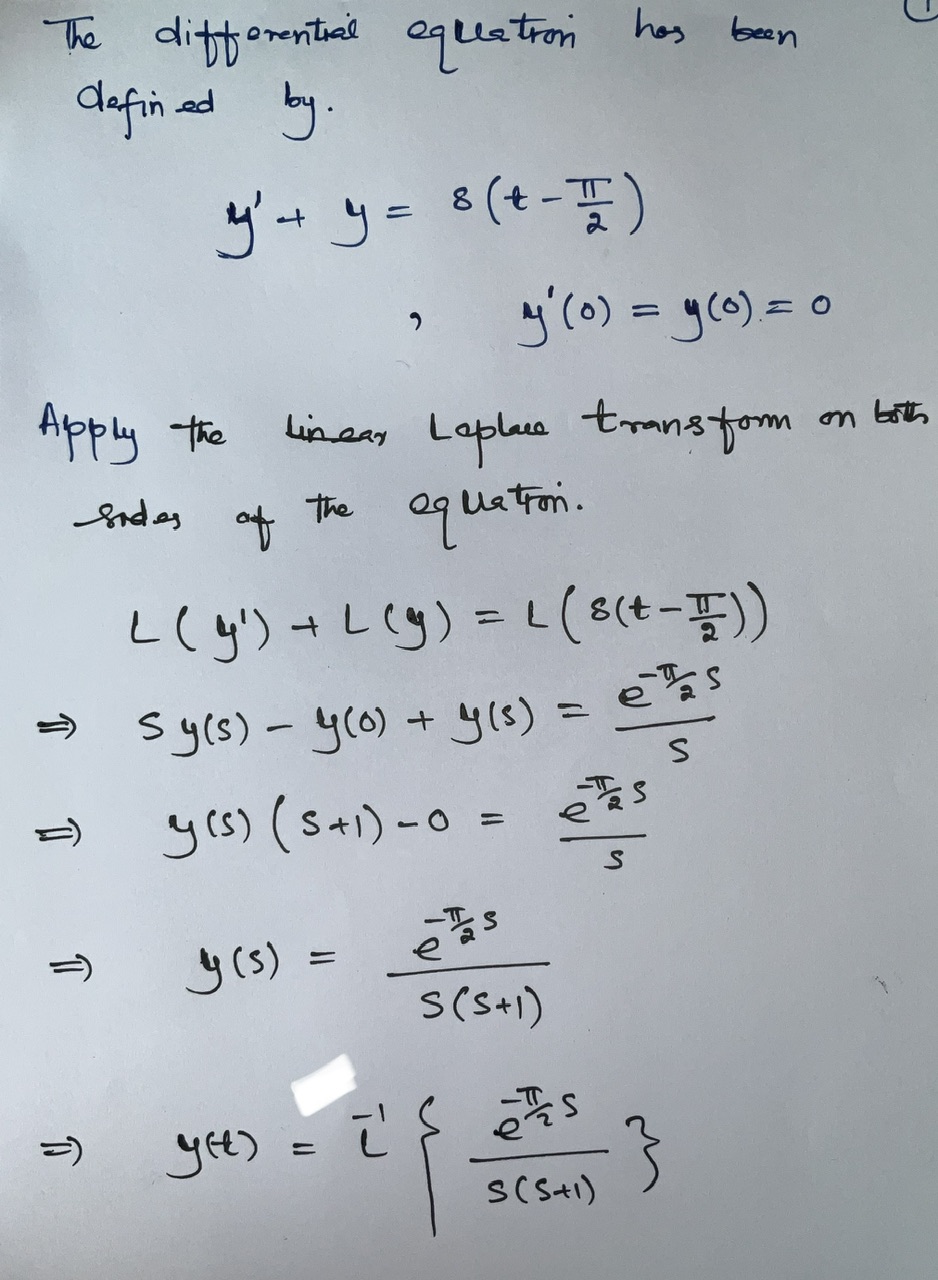 The differential equation has been
defined by.
y' + y = δ(t - π/2)
, y'(0) = y(0) = 0
Apply the linear Laplace transform on both
sides of the equation.
L(y') + L(y) = L(δ(t - π/2))
⇒ S y(s) - y(0) + y(s) = e^{-π/2 s} / s
⇒ y(s) (s+1) - 0 = e^{-π/2 s} / s
⇒ y(s) = e^{-π/2 s} / s(s+1)
⇒ y(t) = L^{-1} { e^{-π/2 s} / s(s+1) }